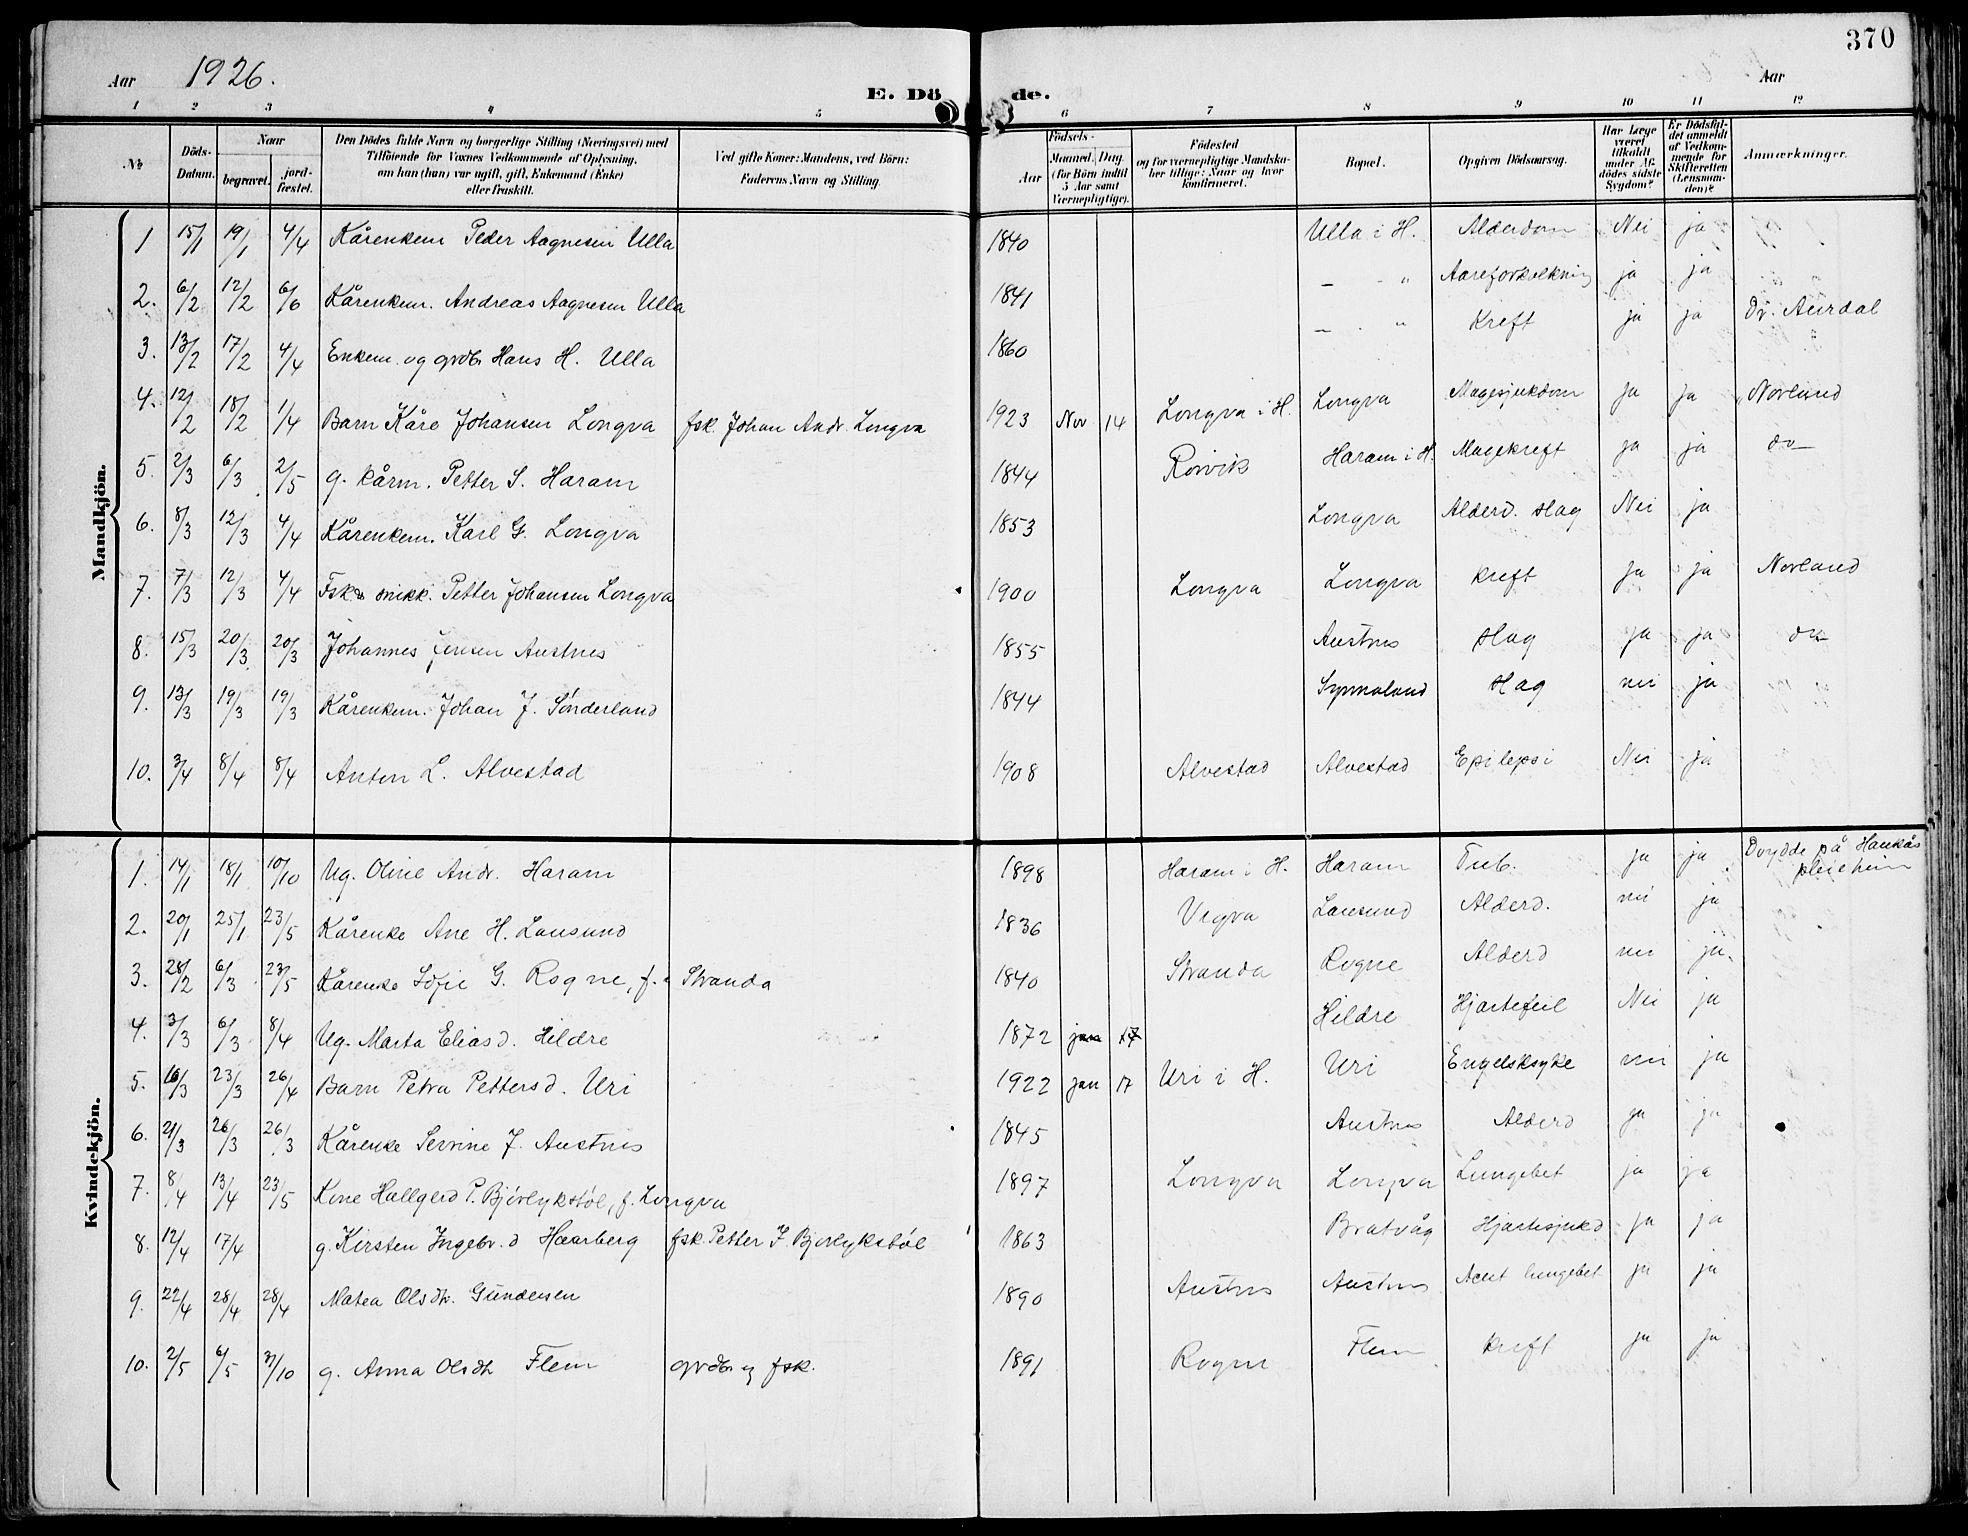 370
Aar 1926. E. Dö de. Aar
1 2 3 4 5 6 7 8 9 10 11 12
No
Döds-Datum.
Naar
begravet.
jord-fæstet.
Den Dödes fulde Navn og borgerlige Stilling (Næringsvei) med
Tilföiende for Voxnes Vedkommende af Oplysning,
om han (hun) var ugift, gift, Enkemand (Enke)
eller fraskilt.
Ved gifte Koner: Mandens, ved Börn:
Faderens Navn og Stilling.
Födsels-
Aar
Maaned. Dag.
(for Börn indtil
5 Aar samt
Værnepligtige).
Födested
og for værnepligtige Mandska-
ber tillige: Naar og hvor
konfirmeret.
Bopæl.
Opgiven Dödsaarsag.
Har Læge
været
tilkaldt
under Af-
dödes sidste
Sygdom?
Er Dödsfal-
det anmeldt
af Vedkom-
mende for
Skifteretten
(Lensman-
den)?
Anmærkninger.
Mandkjön.
1 15/1 19/1 4/4 Kårenkem Peder Aagnesen Ulla 1840 Ulla i H. Alderdom Nei ja
2. 6/2 12/2 6/6 Kårenkem. Andreas Aagnesen Ulla 1841 — " Aareforkalkning ja ja
3. 13/2 17/2 4/4 Enkem. og grdbr Hans H. Ulla 1860 — " Kreft ja ja Dr. Aurdal
4. 12/2 18/2 1/4 Barn Kåre Johansen Longva fsk. Johan Andr. Longva 1923 Nov 14 Longva i H. Longva Magesjukdom ja ja Norland
5. 2/3 6/3 2/5 g. kårm. Petter S. Haram 1844 Rørvik Haram i H. Magekreft ja ja do—
6. 8/3 12/3 4/4 Kårenkem. Karl G. Longva 1853 Longva Alderd. slag Nei ja
7. 7/3 12/3 4/4 Fsk. snikk. Petter Johansen Longva 1900 Longva Longva kreft ja ja Norland
8. 15/3 20/3 20/3 Johannes Jensen Austnes 1855 Austnes slag ja ja do
9. 13/3 19/3 19/3 Kårenkem. Johan J. Sønderland 1844 Synnaland slag nei ja
10. 3/4 8/4 8/4 Anton L. Alvestad 1908 Alvestad Alvestad Epilepsi Nei ja
Kvindekjön.
1. 14/1 18/1 10/10 Ug. Oline Andr. Haram 1898 Haram i H. Haram Tub. ja ja Døydde på Haukås pleieheim
2. 20/1 25/1 23/5 Kårenke Ane H. Lausund 1836 Vigva Lausund Alderd. nei ja
3. 28/2 6/3 23/5 Kårenke Sofie G. Rogne, f. Stranda 1840 Stranda Rogne Alderd nei ja.
4. 3/3 6/3 8/4 Ug. Marta Eliasd. Hildre 1872 jan 17 Hildre Hjartefeil Nei ja
5. 16/3 23/3 26/4 Barn Petra Pettersd. Uri 1922 jan 17 Uri i H. Uri Engelsksyke nei ja
6. 21/3 26/3 26/3 Kårenke Serine J. Austnes 1845 Austnes Alderd ja ja
7. 8/4 13/4 23/5 Kone Hallgerd P. Bjørlykstøl, f. Longva 1897 Longva Longva Lungebet ja ja
8. 12/4 17/4 g. Kirsten Ingebr.d Haarberg fsk. Petter J. Bjørlykstøl 1863 Bratvåg Hjartesjukd ja ja
9. 22/4 28/4 28/4 Matea Olsdtr. Gundersen 1890 Austnes Austnes Acut lungebet ja ja
10. 2/5 6/5 31/10 g. Anna Olsdtr Flem grdbr og fsk. 1891 Rogne Flem kreft ja ja